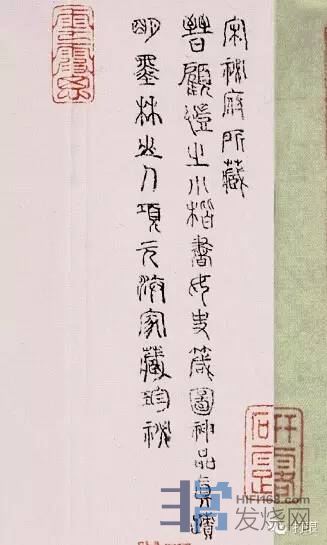 宋祕府所藏
晉顧愷之小楷書女史箴圖神品真蹟
明墨林山人項元汴家藏珍祕
非常
HIFI168.com
发烧网